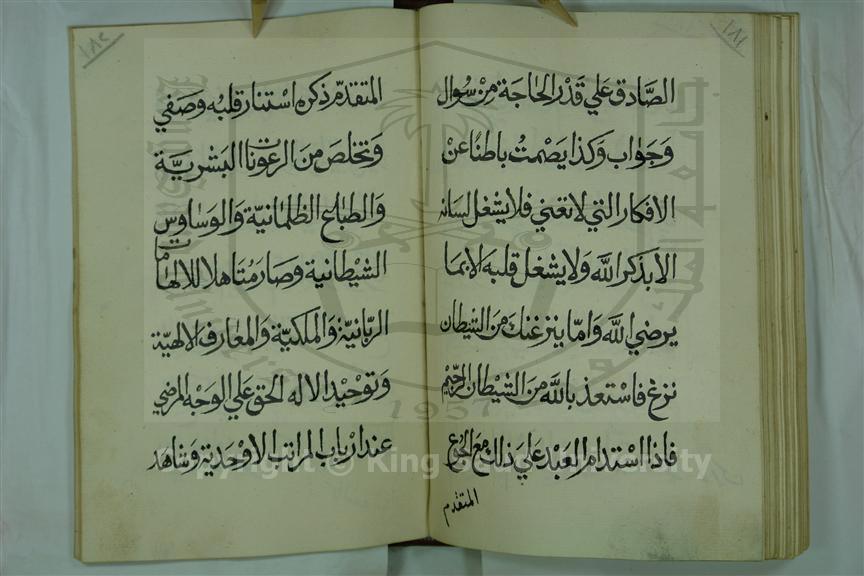 ١٨١
الصادق علي قدر الحاجة من سوال
وجواب وكذا يصمت باطنا عن
الافكار التي لا تعني فلا يشغل لسانه
الا بذكر الله ولا يشغل قلبه الا بما
يرضي الله واما ينزغنك من الشيطان
نزغ فاستعذ بالله من الشيطان الرجيم
فاذا استدام العبد علي ذلك مع الجوع
المتقدم
١٨٢
المتقدم ذكره استنار قلبه وصفي
وتخلص من الرعونات البشرية
والطباع الظلمانية والوساوس
الشيطانية وصار متاهلا للالهامات
الربانية والملكية والمعارف الالهية
وتوحيد الاله الحق علي الوجه المرضي
عند ارباب المراتب الاوحدية وشاهد
1957
Copyright © King Saud University